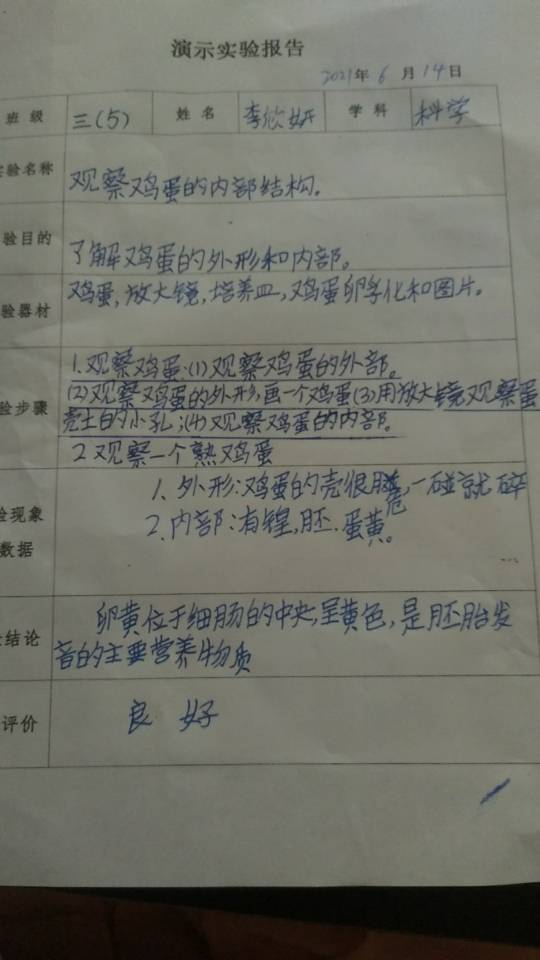 演示实验报告
2021年6月14日
班级 三(5) 姓名 李欣妍 学科 科学
验名称 观察鸡蛋的内部结构。
验目的 了解鸡蛋的外形和内部。
验器材 鸡蛋,放大镜,培养皿,鸡蛋卵孚化和图片。
1.观察鸡蛋:(1)观察鸡蛋的外部。
(2)观察鸡蛋的外形,画一个鸡蛋(3)用放大镜观察蛋
验步骤 壳土白的小孔;(4)观察鸡蛋的内部。
2观察一个熟鸡蛋
1、外形:鸡蛋的壳很脆,一碰就碎
验现象 2、内部:有锽,胚.蛋黄。
数据
卵黄位于细肠的中央,呈黄色,是胚胎发
结论 音的主要营养物质
评价 良好